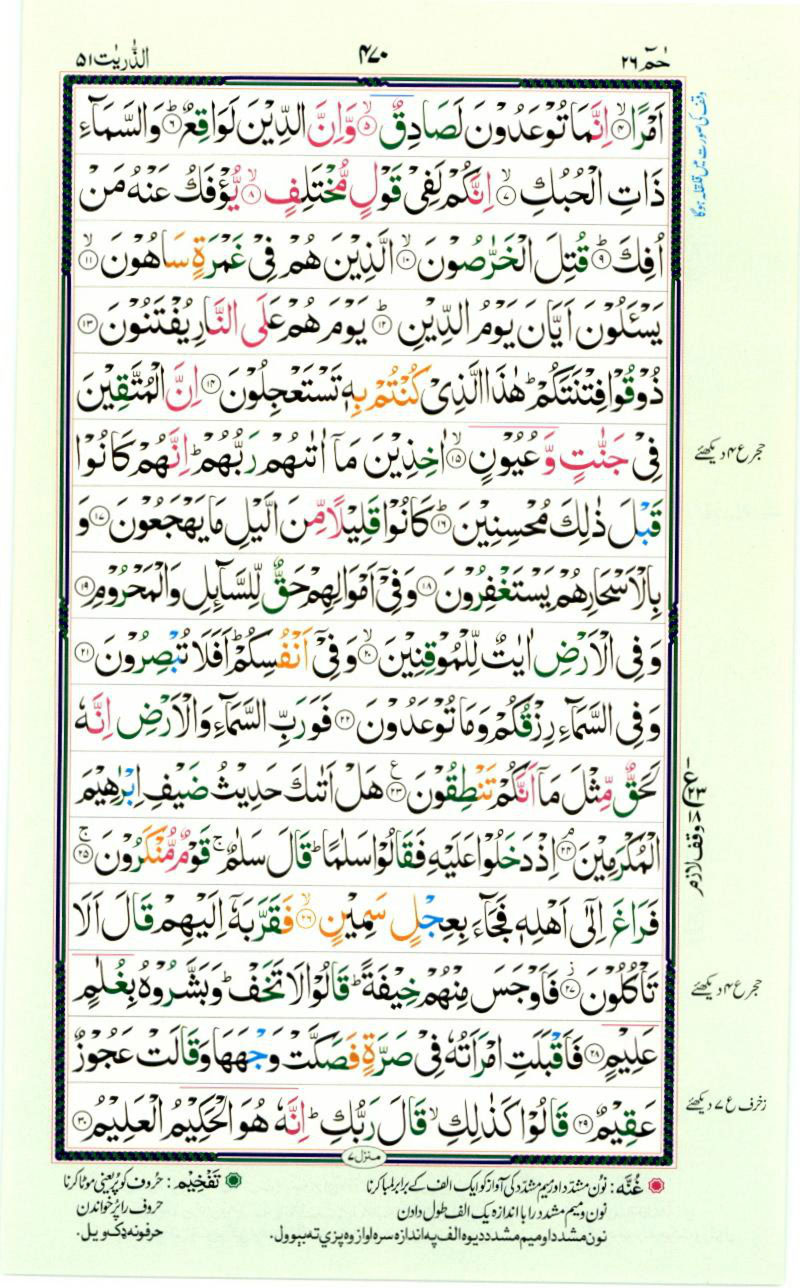 حٰمٓ ۲۶
۴۷۰
الذّٰرِيٰت ۵۱
اَمْرًا ۙ﴿۴﴾ اِنَّمَا تُوْعَدُوْنَ لَصَادِقٌ ۙ﴿۵﴾ وَّاِنَّ الدِّيْنَ لَوَاقِعٌ ؕ﴿۶﴾ وَالسَّمَآءِ
ذَاتِ الْحُبُكِ ۙ﴿۷﴾ اِنَّكُمْ لَفِيْ قَوْلٍ مُّخْتَلِفٍ ۙ﴿۸﴾ يُّؤْفَكُ عَنْهُ مَنْ
اُفِكَ ؕ﴿۹﴾ قُتِلَ الْخَرّٰصُوْنَ ۙ﴿۱۰﴾ الَّذِيْنَ هُمْ فِيْ غَمْرَةٍ سَاهُوْنَ ۙ﴿۱۱﴾
يَسْـَٔلُوْنَ اَيَّانَ يَوْمُ الدِّيْنِ ؕ﴿۱۲﴾ يَوْمَ هُمْ عَلَى النَّارِ يُفْتَنُوْنَ ﴿۱۳﴾
ذُوْقُوْا فِتْنَتَكُمْ ؕ هٰذَا الَّذِيْ كُنْتُمْ بِهٖ تَسْتَعْجِلُوْنَ ﴿۱۴﴾ اِنَّ الْمُتَّقِيْنَ
فِيْ جَنّٰتٍ وَّعُيُوْنٍ ۙ﴿۱۵﴾ اٰخِذِيْنَ مَآ اٰتٰىهُمْ رَبُّهُمْ ؕ اِنَّهُمْ كَانُوْا
قَبْلَ ذٰلِكَ مُحْسِنِيْنَ ؕ﴿۱۶﴾ كَانُوْا قَلِيْلًا مِّنَ الَّيْلِ مَا يَهْجَعُوْنَ ﴿۱۷﴾ وَ
بِالْاَسْحَارِ هُمْ يَسْتَغْفِرُوْنَ ﴿۱۸﴾ وَفِيْٓ اَمْوَالِهِمْ حَقٌّ لِّلسَّآئِلِ وَالْمَحْرُوْمِ ﴿۱۹﴾
وَفِي الْاَرْضِ اٰيٰتٌ لِّلْمُوْقِنِيْنَ ۙ﴿۲۰﴾ وَفِيْٓ اَنْفُسِكُمْ ؕ اَفَلَا تُبْصِرُوْنَ ﴿۲۱﴾
وَفِي السَّمَآءِ رِزْقُكُمْ وَمَا تُوْعَدُوْنَ ﴿۲۲﴾ فَوَرَبِّ السَّمَآءِ وَالْاَرْضِ اِنَّهٗ
لَحَقٌّ مِّثْلَ مَآ اَنَّكُمْ تَنْطِقُوْنَ ۧ﴿۲۳﴾ هَلْ اَتٰىكَ حَدِيْثُ ضَيْفِ اِبْرٰهِيْمَ
الْمُكْرَمِيْنَ ۘ﴿۲۴﴾ اِذْ دَخَلُوْا عَلَيْهِ فَقَالُوْا سَلٰمًا ؕ قَالَ سَلٰمٌ ۚ قَوْمٌ مُّنْكَرُوْنَ ۚ﴿۲۵﴾
فَرَاغَ اِلٰٓى اَهْلِهٖ فَجَآءَ بِعِجْلٍ سَمِيْنٍ ۙ﴿۲۶﴾ فَقَرَّبَهٗٓ اِلَيْهِمْ قَالَ اَلَا
تَاْكُلُوْنَ ؗ﴿۲۷﴾ فَاَوْجَسَ مِنْهُمْ خِيْفَةً ؕ قَالُوْا لَا تَخَفْ ؕ وَبَشَّرُوْهُ بِغُلٰمٍ
عَلِيْمٍ ﴿۲۸﴾ فَاَقْبَلَتِ امْرَاَتُهٗ فِيْ صَرَّةٍ فَصَكَّتْ وَجْهَهَا وَقَالَتْ عَجُوْزٌ
عَقِيْمٌ ﴿۲۹﴾ قَالُوْا كَذٰلِكِ ۙ قَالَ رَبُّكِ ؕ اِنَّهٗ هُوَ الْحَكِيْمُ الْعَلِيْمُ ﴿۳۰﴾
منزل ۷
وقف کی صورت میں قلقلہ ہوگا
حجر ع ۴ دیکھئے
ع ۲۳ وقف لازم
حجر ع ۴ دیکھئے
زخرف ع ۷ دیکھئے
غُنَّه: نون مشدد اور میم مشدد کی آواز کو ایک الف کے برابر لمبا کرنا
نون و میم مشدد را با اندازہ یک الف طول دادن
نون مشدد او میم مشدد دیوه الف په اندازه سره اواز وه پزې ته بېوول.
تَفْخِيْم: حروف کو پُر یعنی موٹا کرنا
حروف را پُر خواندن
حرفونه ډک ویل.